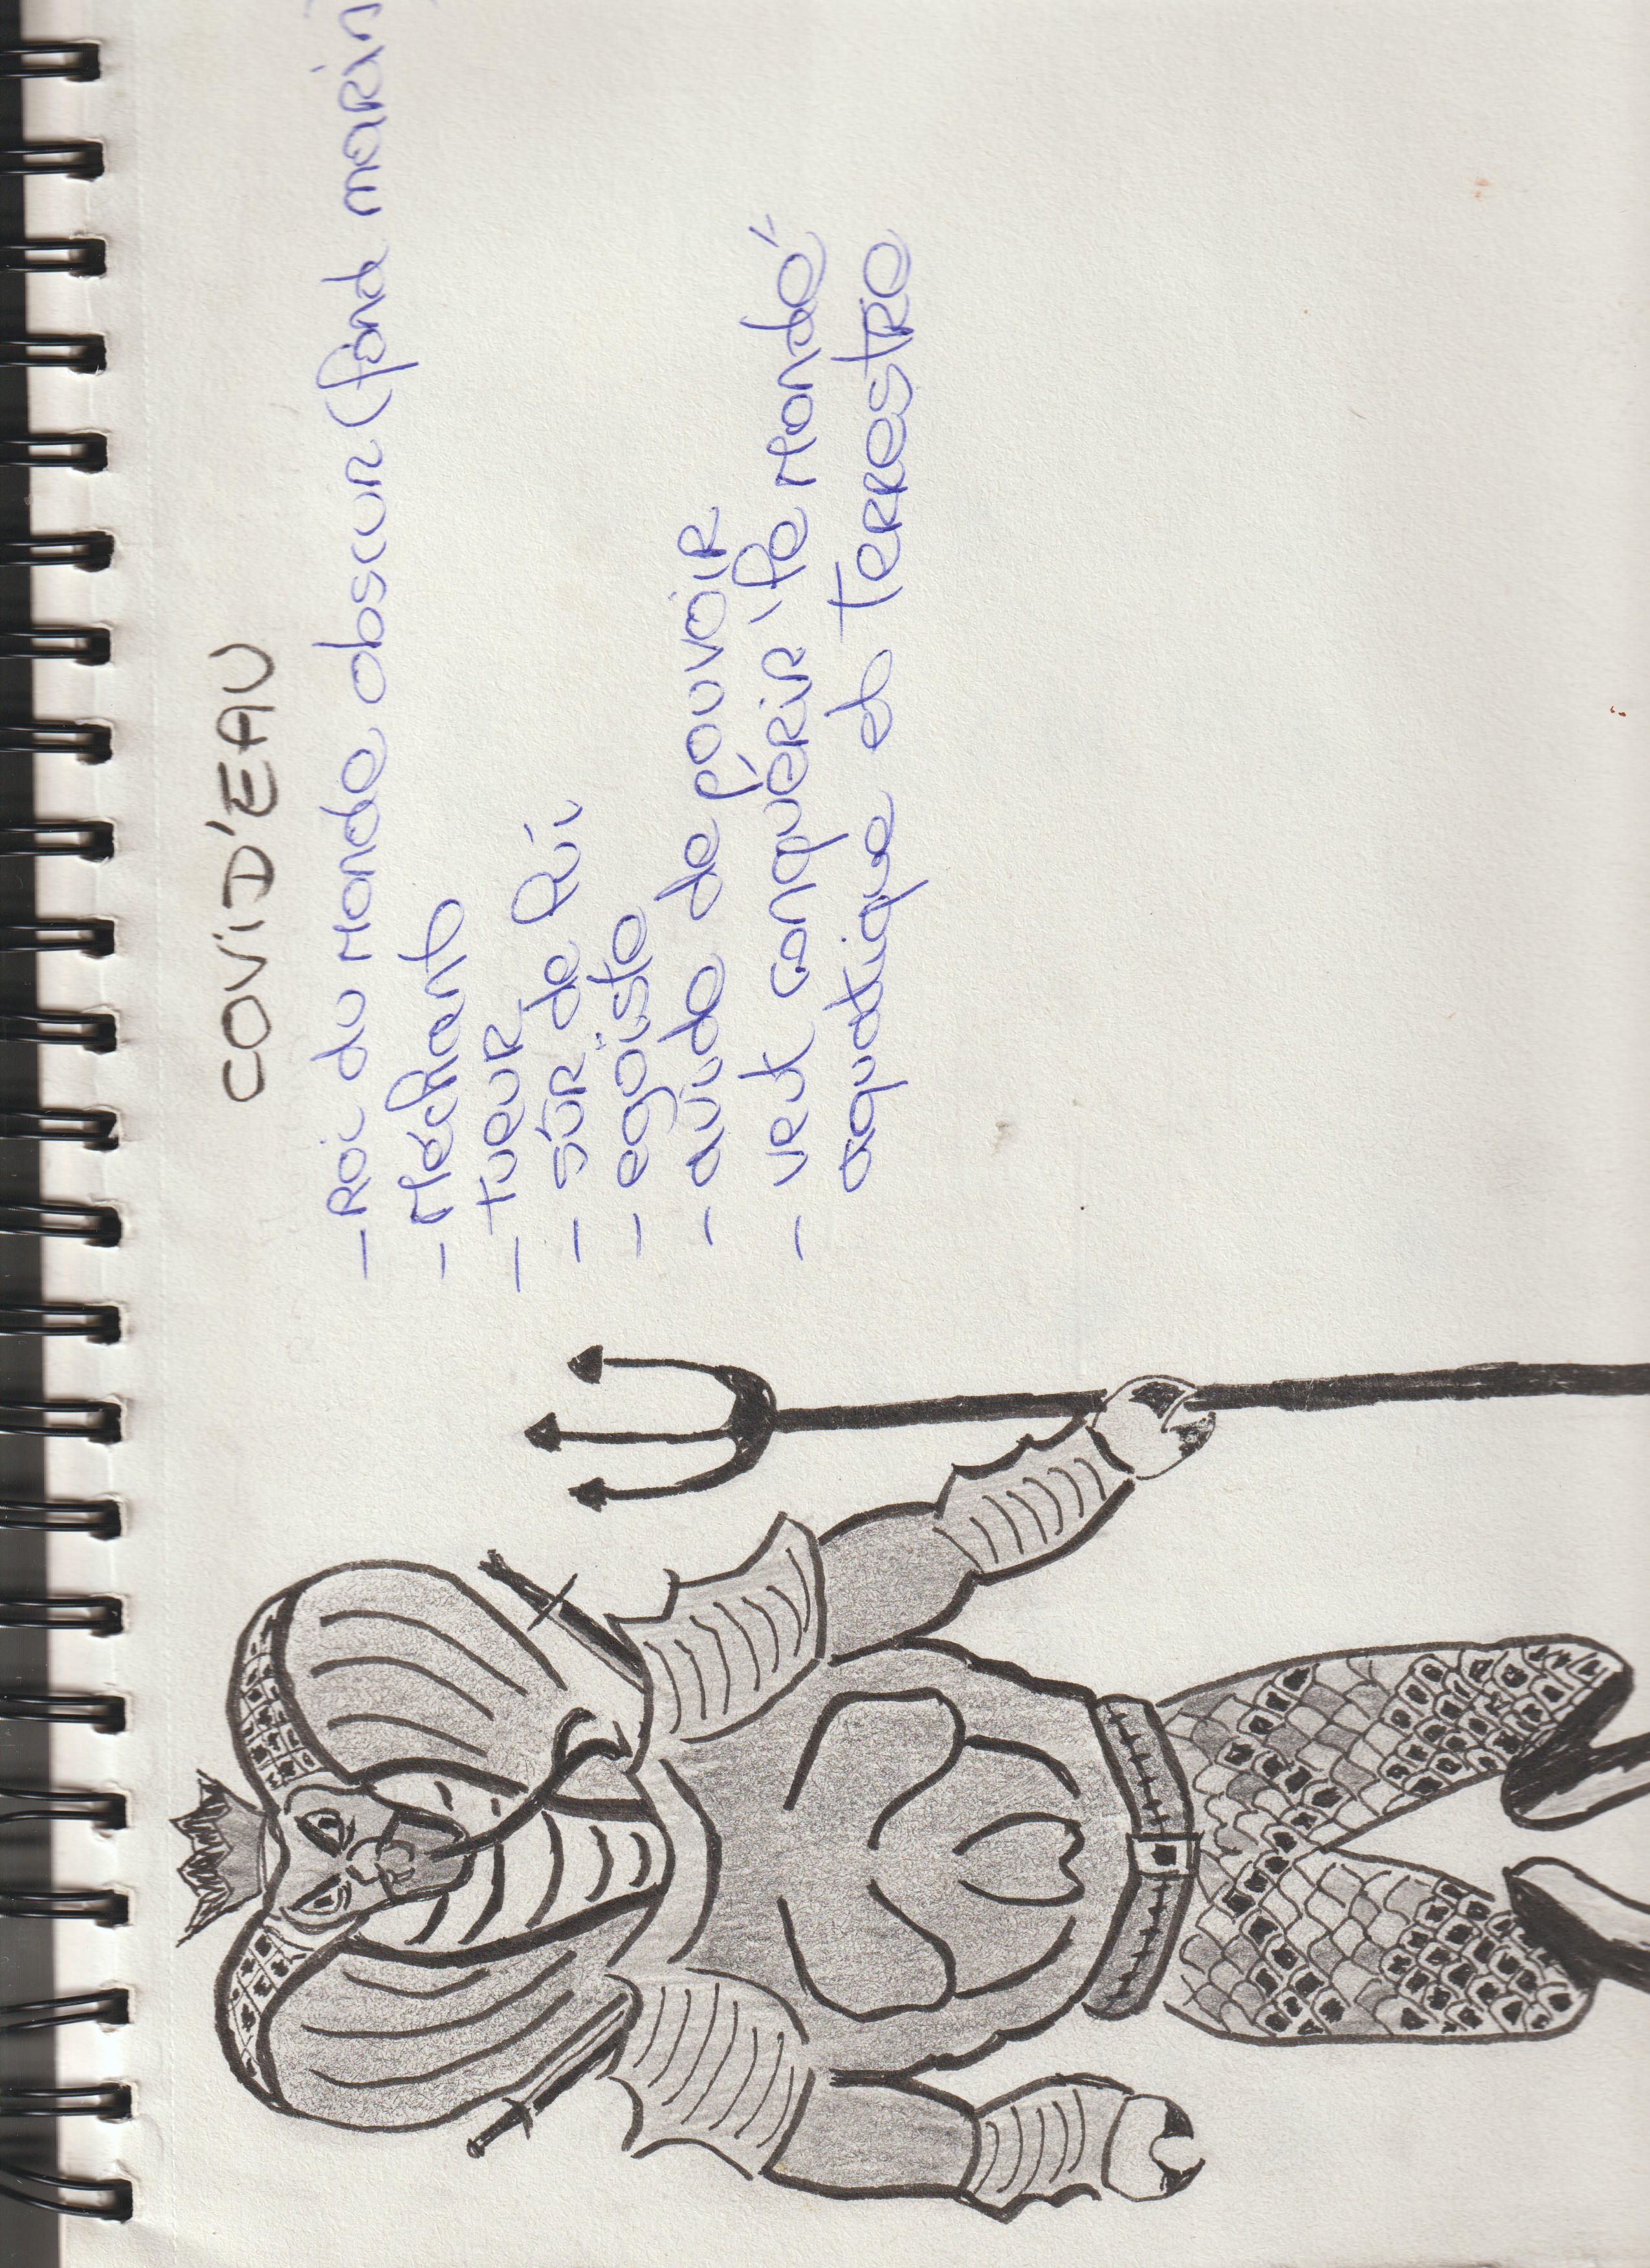 COVID'EAU
- Roi du Monde obscur (fond marin)
- Méchant
- tueur
- sûr de lui
- égoïste
- avide de pouvoir
- veut conquérir "le Monde"
aquatique et Terrestre